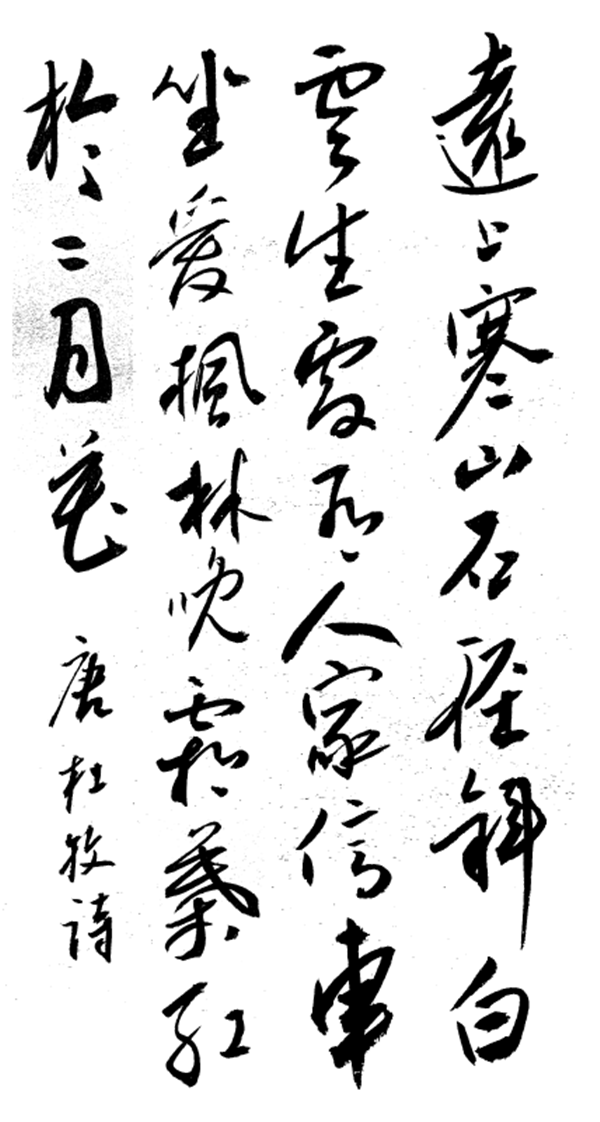 遠上寒山石徑斜白
雲生處有人家停車
坐愛楓林晚霜葉紅
於二月花 唐杜牧詩